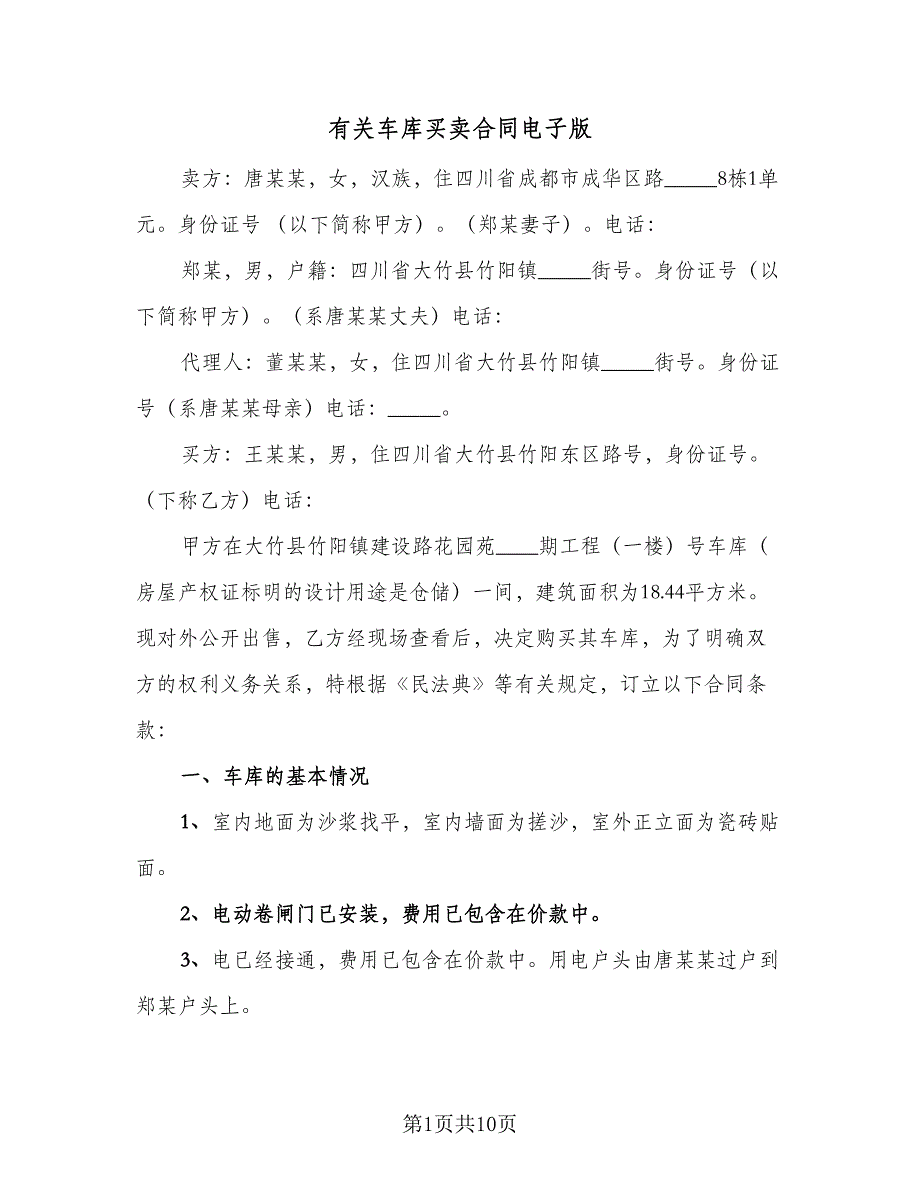 有关车库买卖合同电子版
卖方：唐某某，女，汉族，住四川省成都市成华区路_____8栋1单
元。身份证号 （以下简称甲方）。（郑某妻子）。电话：
郑某，男，户籍：四川省大竹县竹阳镇_____街号。身份证号（以
下简称甲方）。（系唐某某丈夫）电话：
代理人：董某某，女，住四川省大竹县竹阳镇_____街号。身份证
号（系唐某某母亲）电话：_____。
买方：王某某，男，住四川省大竹县竹阳东区路号，身份证号。
（下称乙方）电话：
甲方在大竹县竹阳镇建设路花园苑____期工程（一楼）号车库（
房屋产权证标明的设计用途是仓储）一间，建筑面积为18.44平方米。
现对外公开出售，乙方经现场查看后，决定购买其车库，为了明确双
方的权利义务关系，特根据《民法典》等有关规定，订立以下合同条
款：
一、车库的基本情况
1、室内地面为沙浆找平，室内墙面为搓沙，室外正立面为瓷砖贴
面。
2、电动卷闸门已安装，费用已包含在价款中。
3、电已经接通，费用已包含在价款中。用电户头由唐某某过户到
郑某户头上。
第1页共10页